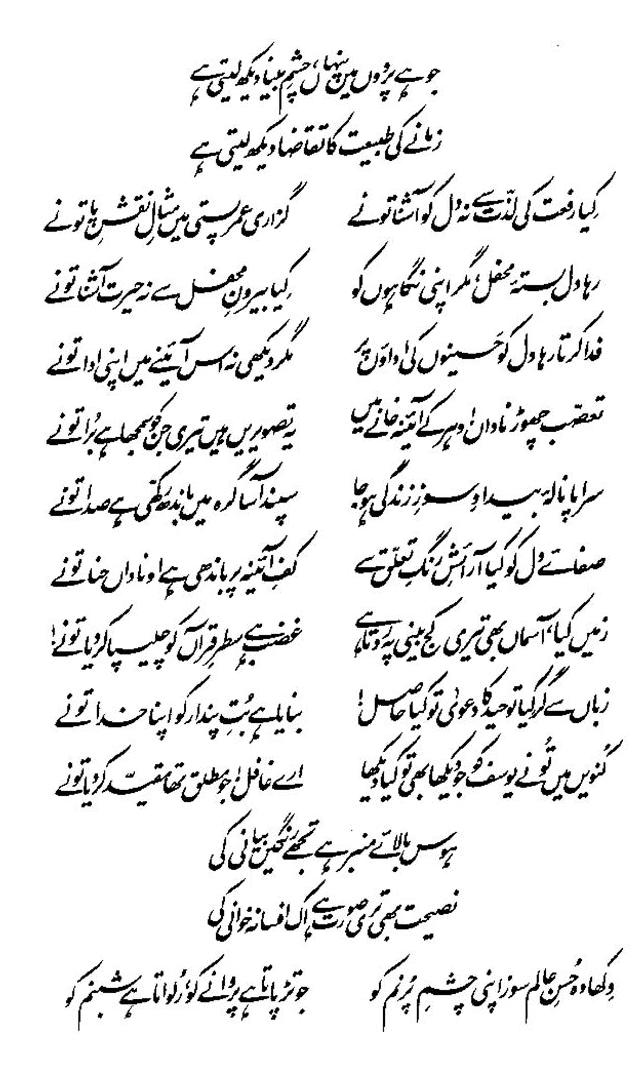 جو ہے پردوں میں پنہاں، چشمِ بینا دیکھ لیتی ہے
زمانے کی طبیعت کا تقاضا دیکھ لیتی ہے
کیا رفعت کی لذّت سے نہ دل کو آشنا تو نے گزاری عمر پستی میں مثالِ نقشِ پا تو نے
رہا دل بستۂ محفل، مگر اپنی نگاہوں کو کیا بیرونِ محفل سے نہ حیرت آشنا تو نے
فدا کرتا رہا دل کو حسینوں کی اداؤں پر مگر دیکھی نہ اس آئینے میں اپنی ادا تو نے
تعصّب چھوڑ ناداں! دہر کے آئینہ خانے میں یہ تصویریں ہیں تیری جن کو سمجھا ہے برا تو نے
سراپا نالۂ بیدادِ سوزِ زندگی ہو جا سپند آسا گرہ میں باندھ رکھی ہے صدا تو نے
صفائے دل کو کیا آرائشِ رنگِ تعلّق سے کفِ آئینہ پر باندھی ہے او ناداں حنا تو نے
زمیں کیا، آسماں بھی تیری کج بینی پہ روتا ہے غضب ہے سطرِ قرآں کو چلیپا کر دیا تو نے!
زباں سے گر کیا توحید کا دعویٰ تو کیا حاصل! بنایا ہے بُتِ پندار کو اپنا خدا تو نے
کنویں میں تُو نے یوسف کو جو دیکھا بھی تو کیا دیکھا ارے غافل! جو مطلق تھا مقیّد کر دیا تو نے
ہوس بالائے منبر ہے تجھے رنگیں بیانی کی
نصیحت بھی تری صورت ہے اک افسانہ خوانی کی
دکھا وہ حُسنِ عالم سوز اپنی چشمِ پُرنم کو جو تڑپاتا ہے پروانے کو، رُلواتا ہے شبنم کو